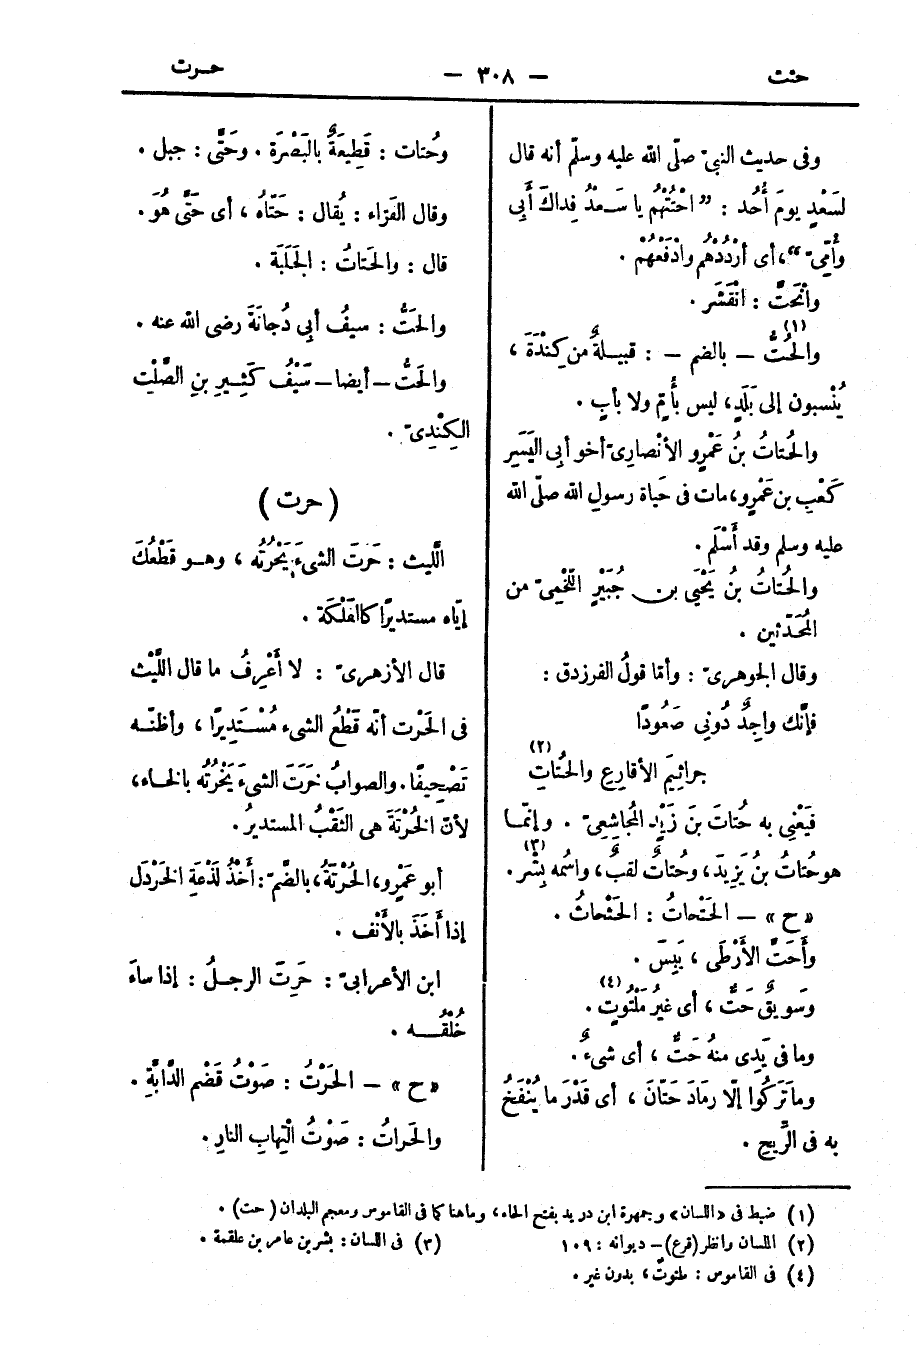 حتت
— ٣٠٨ —
حرت
وفى حديث النبىّ صلّى الله عليه وسلّم أنه قال
لسَعْدٍ يومَ أُحُد : ” احْتُتْهُم يا سَعْدُ فِداكَ أَبِى
وأُمِّىّ “، أى أرْدُدْهُم وادْفَعْهُم .
وانْحَتَّ : انْقَشَر .
والحُتُّ (١) – بالضم – : قبيلةٌ من كِنْدَةَ ،
يُنْسبون إلى بَلَدٍ، ليس بأُمٍّ ولا بأبٍ .
والحُتاتُ بنُ عَمْرٍو الأنْصارِىّ أخو أبِى اليَسَرِ
كَعْبِ بن عَمْرٍو، مات فى حَياة رسولِ الله صلّى الله
عليه وسلم وقد أَسْلَم .
والحُتاتُ بنُ يَحْيَى بن جُبَيْرٍ اللَّخْمِىّ من
المُحَدِّثين .
وقال الجوهرىّ : وأمّا قولُ الفرزدق :
فإنَّك واجِدٌ دُونِى صَعُودًا
جراثِيمَ الأقارِعِ والحُتاتِ (٢)
فيَعْنِى به حُتاتَ بنَ زَيْدٍ المُجاشِعِىّ . وإنّما
هو حُتاتُ بنُ يَزِيدَ، وحُتاتٌ لقبٌ، واسمُه بِشْر (٣).
«ح» – الحَتْحاتُ : الحَثْحاثُ .
وأَحَتَّ الأَرْطَى ، يَبِسَ .
وسَوِيقٌ حَتٌّ ، أى غيرُ مَلْتُوتٍ (٤) .
وما فى يَدِى منهُ حَتٌّ ، أى شىءٌ .
وما تَرَكُوا إلّا رمادَ حَتّانَ ، أى قَدْرَ ما يُنْفَخُ
به فى الرِّيحِ .
وحُتات : قَطِيعَةٌ بالبَصْرَة . وحَتَّى : جبل .
وقال الفَرّاء : يُقال : حَتّاهُ ، أى حَتَّى هُوَ .
قال : والحَتاتُ : الجَلَبَة .
والحَتُّ : سيفُ أبِى دُجانَةَ رضى الله عنه .
والحَتُّ – أيضا – سَيْفُ كَثِيرِ بنِ الصَّلْتِ
الكِنْدِىّ .
( حرت )
اللّيث : حَرَتَ الشىءَ يَحْرُتُه ، وهو قَطْعُكَ
إيّاه مستديرًا كالفَلْكَة .
قال الأزهرىّ : لا أَعْرِفُ ما قال اللَّيْث
فى الحَرْت أنّه قَطْعُ الشىء مُسْتَدِيرًا ، وأظنّه
تَصْحِيفًا. والصوابُ خَرَتَ الشىءَ يَخْرُتُه بالخاء،
لأنّ الخُرْتَةَ هى الثَقْبُ المستديرُ.
أبو عَمْرٍو، الحُرْتَةُ، بالضّمّ : أَخْذُ لَذْعَةِ الخَرْدَل
إذا أَخَذَ بالأَنْف .
ابن الأعرابىّ : حَرِتَ الرجلُ : إذا ساءَ
خُلُقُه .
«ح» – الحَرْتُ : صَوْتُ قَضْم الدّابَّةِ .
والحَراتُ : صَوْتُ الْتِهابِ النارِ .
(١) ضبط فى «اللسان» وجمهرة ابن دريد بفتح الحاء، وما هنا كما فى القاموس ومعجم البلدان (حت) .
(٢) اللسان وانظر (قرع) – ديوانه : ١٠٩
(٣) فى اللسان : بشر بن عامر بن علقمة .
(٤) فى القاموس : ملتوتٌ، بدون غير .